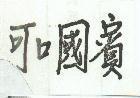 可口國賓